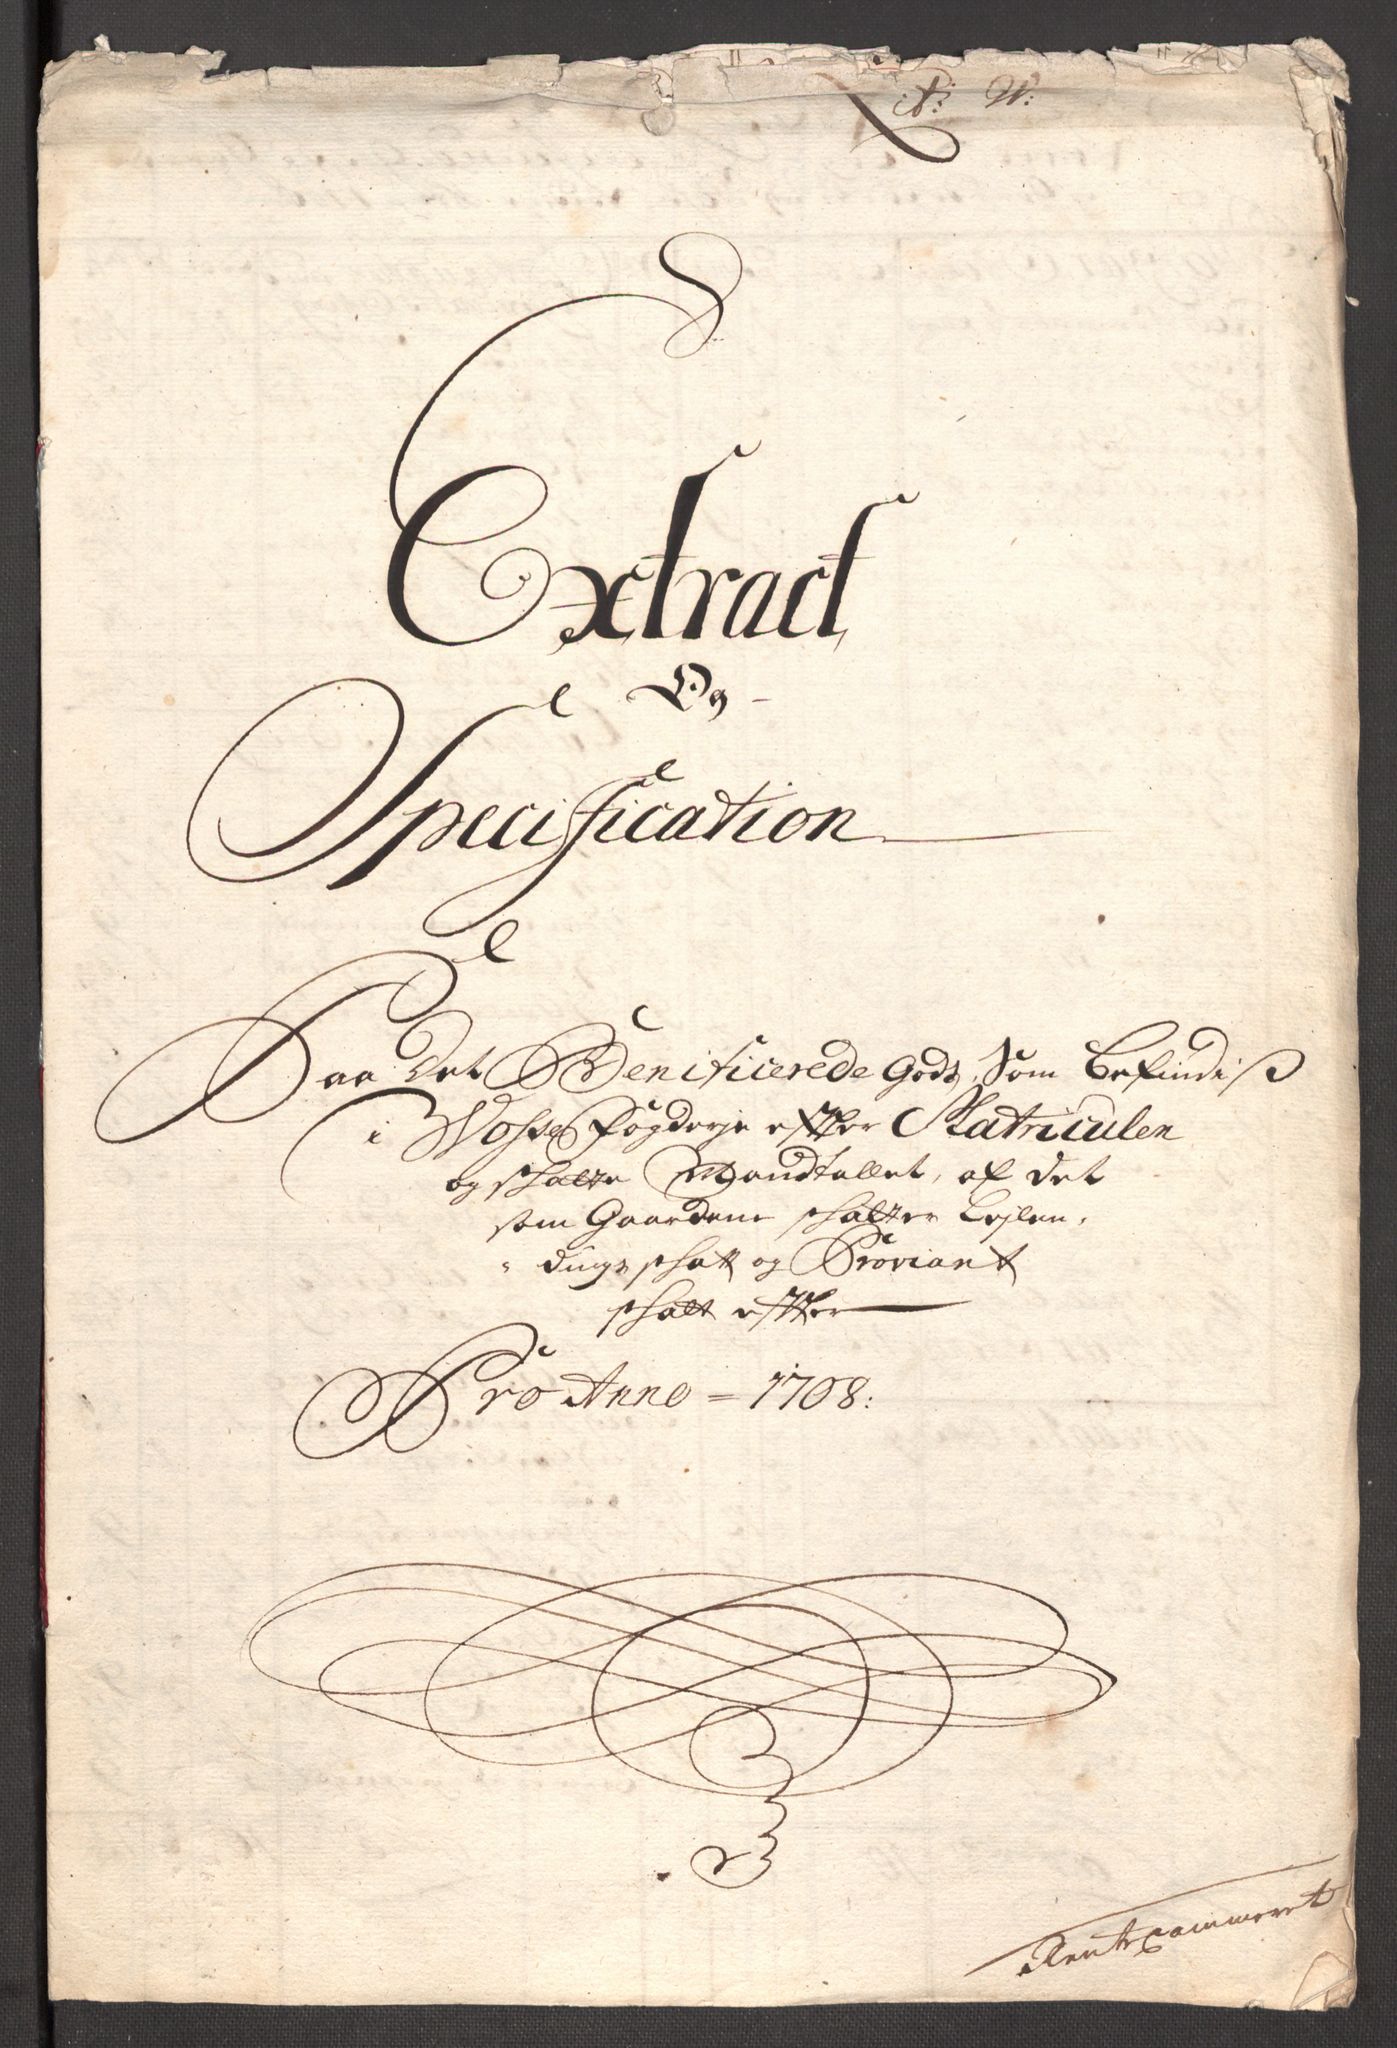 Lit: W:
Extract
Og
Specification
Paa Det Benificerede Gods, Som befindiß
i Woße fögderje effter Matriculen
og schatte Mandtallet, af det
som Gaardene schatter Leylen,
dings schatt og Proviant
schatt effter
Pro Anno = 1708:
Rentecammeret